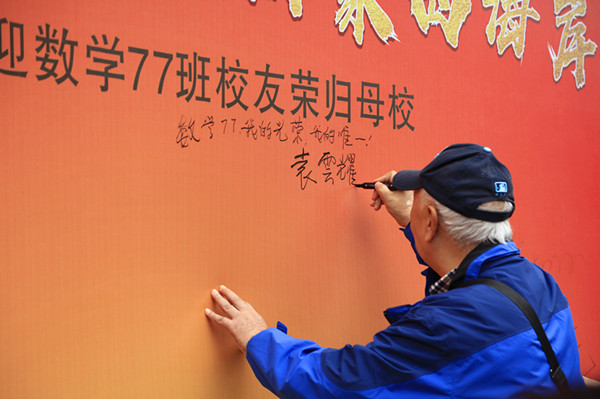 的海岸
迎数学77班校友荣归母校
数学77,我的光荣,我的唯一!
袁雲耀